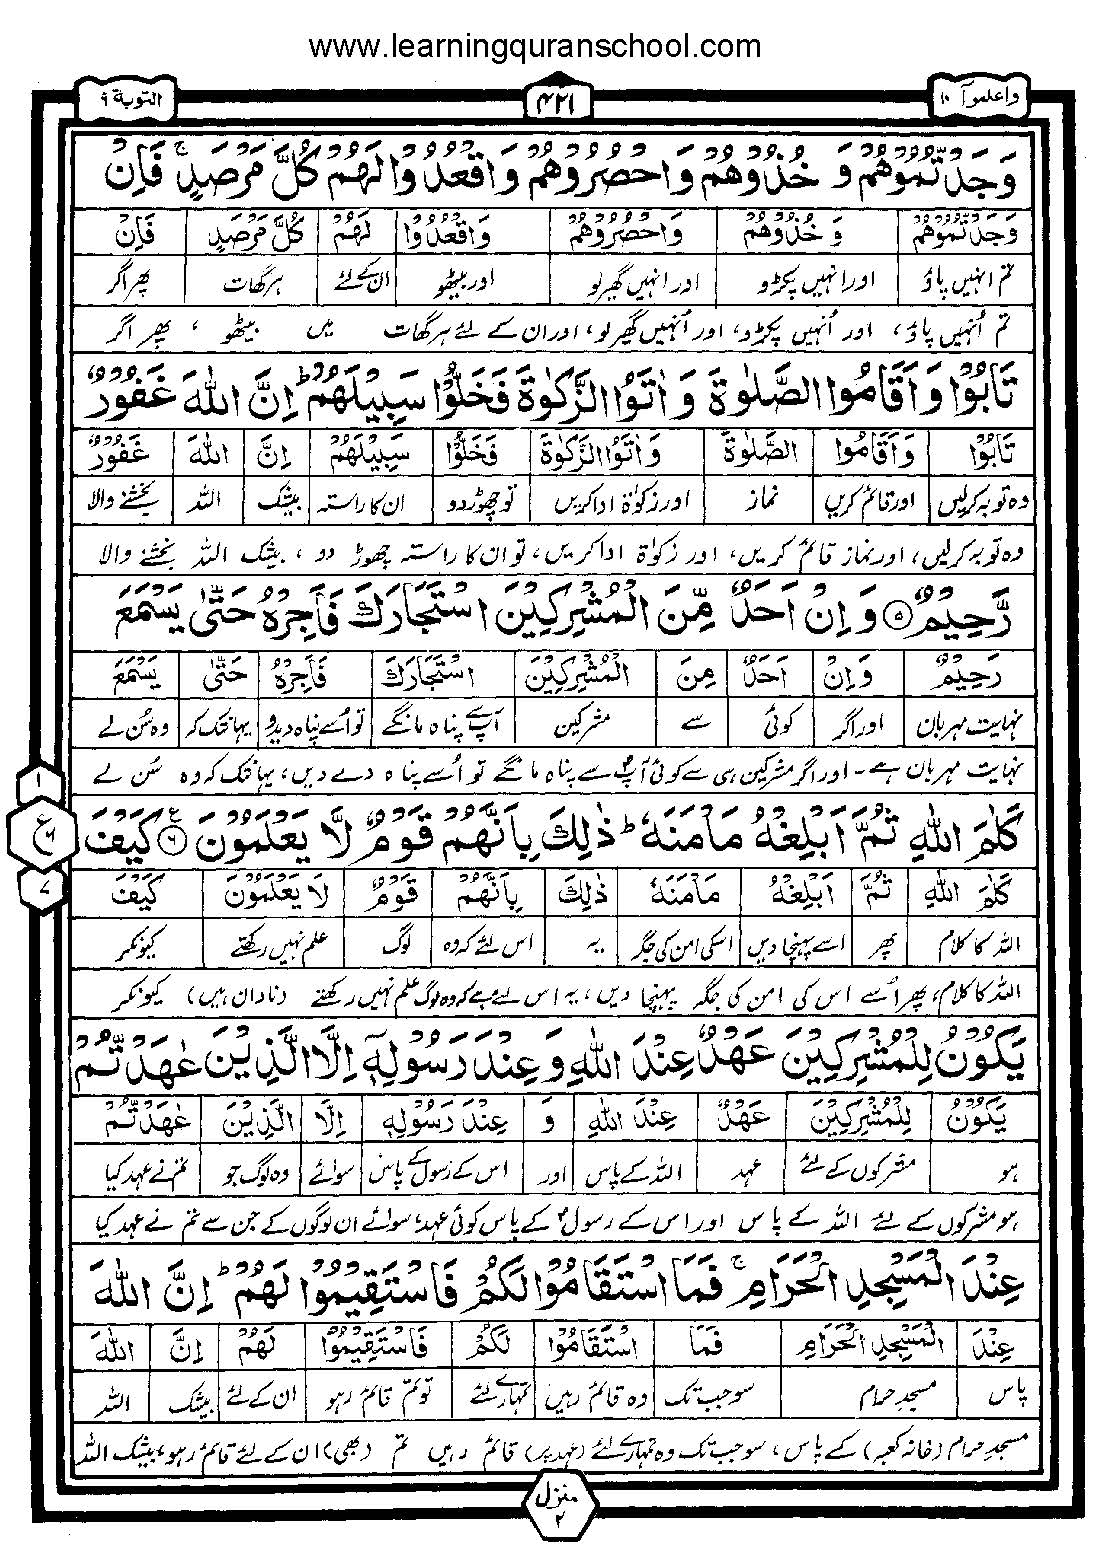 www.learningquranschool.com
واعلموآ ١٠
۴۲۱
التوبة ٩
وَجَدْتُّمُوْهُمْ وَ خُذُوْهُمْ وَاحْصُرُوْهُمْ وَاقْعُدُوْا لَهُمْ كُلَّ مَرْصَدٍ ۚ فَاِنْ
وَجَدْتُّمُوْهُمْ وَ خُذُوْهُمْ وَاحْصُرُوْهُمْ وَاقْعُدُوْا لَهُمْ كُلَّ مَرْصَدٍ فَاِنْ
تم انہیں پاؤ اور انہیں پکڑو اور انہیں گھیر لو اور بیٹھو ان کے لئے ہر گھات پھر اگر
تم اُنہیں پاؤ، اور اُنہیں پکڑو، اور اُنہیں گھیر لو، اور ان کے لئے ہر گھات میں بیٹھو ، پھر اگر
تَابُوْا وَ اَقَامُوا الصَّلٰوةَ وَ اٰتَوُا الزَّكٰوةَ فَخَلُّوْا سَبِيْلَهُمْ ؕ اِنَّ اللّٰهَ غَفُوْرٌ
تَابُوْا وَ اَقَامُوا الصَّلٰوةَ وَ اٰتَوُا الزَّكٰوةَ فَخَلُّوْا سَبِيْلَهُمْ اِنَّ اللّٰهَ غَفُوْرٌ
وہ توبہ کرلیں اور قائم کریں نماز اور زکوٰۃ ادا کریں تو چھوڑ دو ان کا راستہ بیشک اللہ بخشنے والا
وہ توبہ کرلیں، اور نماز قائم کریں، اور زکوٰۃ ادا کریں، تو ان کا راستہ چھوڑ دو ، بیشک اللہ بخشنے والا
رَّحِيْمٌ ۵ وَ اِنْ اَحَدٌ مِّنَ الْمُشْرِكِيْنَ اسْتَجَارَكَ فَاَجِرْهُ حَتّٰى يَسْمَعَ
رَحِيْمٌ وَ اِنْ اَحَدٌ مِنَ الْمُشْرِكِيْنَ اسْتَجَارَكَ فَاَجِرْهُ حَتّٰى يَسْمَعَ
نہایت مہربان اور اگر کوئی سے مشرکین آپ سے پناہ مانگے تو اُسے پناہ دیدو یہانتک کہ وہ سُن لے
نہایت مہربان ہے۔ اور اگر مشرکین ہی سے کوئی آپؐ سے پناہ مانگے تو اُسے پناہ دے دیں، یہانتک کہ وہ سُن لے
۱
ع
۶
۷
كَلٰمَ اللّٰهِ ثُمَّ اَبْلِغْهُ مَاْمَنَهٗ ؕ ذٰلِكَ بِاَنَّهُمْ قَوْمٌ لَّا يَعْلَمُوْنَ ۶ كَيْفَ
كَلٰمَ اللّٰهِ ثُمَّ اَبْلِغْهُ مَاْمَنَهٗ ذٰلِكَ بِاَنَّهُمْ قَوْمٌ لَا يَعْلَمُوْنَ كَيْفَ
اللہ کا کلام پھر اسے پہنچا دیں اسکی امن کی جگہ یہ اس لئے کہ وہ لوگ علم نہیں رکھتے کیونکر
اللہ کا کلام، پھر اُسے اس کی امن کی جگہ پہنچا دیں، یہ اس لئے ہے کہ وہ لوگ علم نہیں رکھتے (نادان ہیں) کیونکر
يَكُوْنُ لِلْمُشْرِكِيْنَ عَهْدٌ عِنْدَ اللّٰهِ وَ عِنْدَ رَسُوْلِهٖٓ اِلَّا الَّذِيْنَ عٰهَدْتُّمْ
يَكُوْنُ لِلْمُشْرِكِيْنَ عَهْدٌ عِنْدَ اللّٰهِ وَ عِنْدَ رَسُوْلِهٖ اِلَّا الَّذِيْنَ عٰهَدْتُّمْ
ہو مشرکوں کے لئے عہد اللہ کے پاس اور اس کے رسول کے پاس سوائے وہ لوگ جو تم نے عہد کیا
ہو مشرکوں کے لئے اللہ کے پاس اور اس کے رسولؐ کے پاس کوئی عہد، سوائے ان لوگوں کے جن سے تم نے عہد کیا
عِنْدَ الْمَسْجِدِ الْحَرَامِ ۚ فَمَا اسْتَقَامُوْا لَكُمْ فَاسْتَقِيْمُوْا لَهُمْ ؕ اِنَّ اللّٰهَ
عِنْدَ الْمَسْجِدِ الْحَرَامِ فَمَا اسْتَقَامُوْا لَكُمْ فَاسْتَقِيْمُوْا لَهُمْ اِنَّ اللّٰهَ
پاس مسجدِ حرام سو جب تک وہ قائم رہیں تمہارے لئے تو تم قائم رہو ان کے لئے بیشک اللہ
مسجدِ حرام (خانہ کعبہ) کے پاس، سو جب تک وہ تمہارے لئے (عہد پر) قائم رہیں تم (بھی) ان کے لئے قائم رہو، بیشک اللہ
منزل
۲